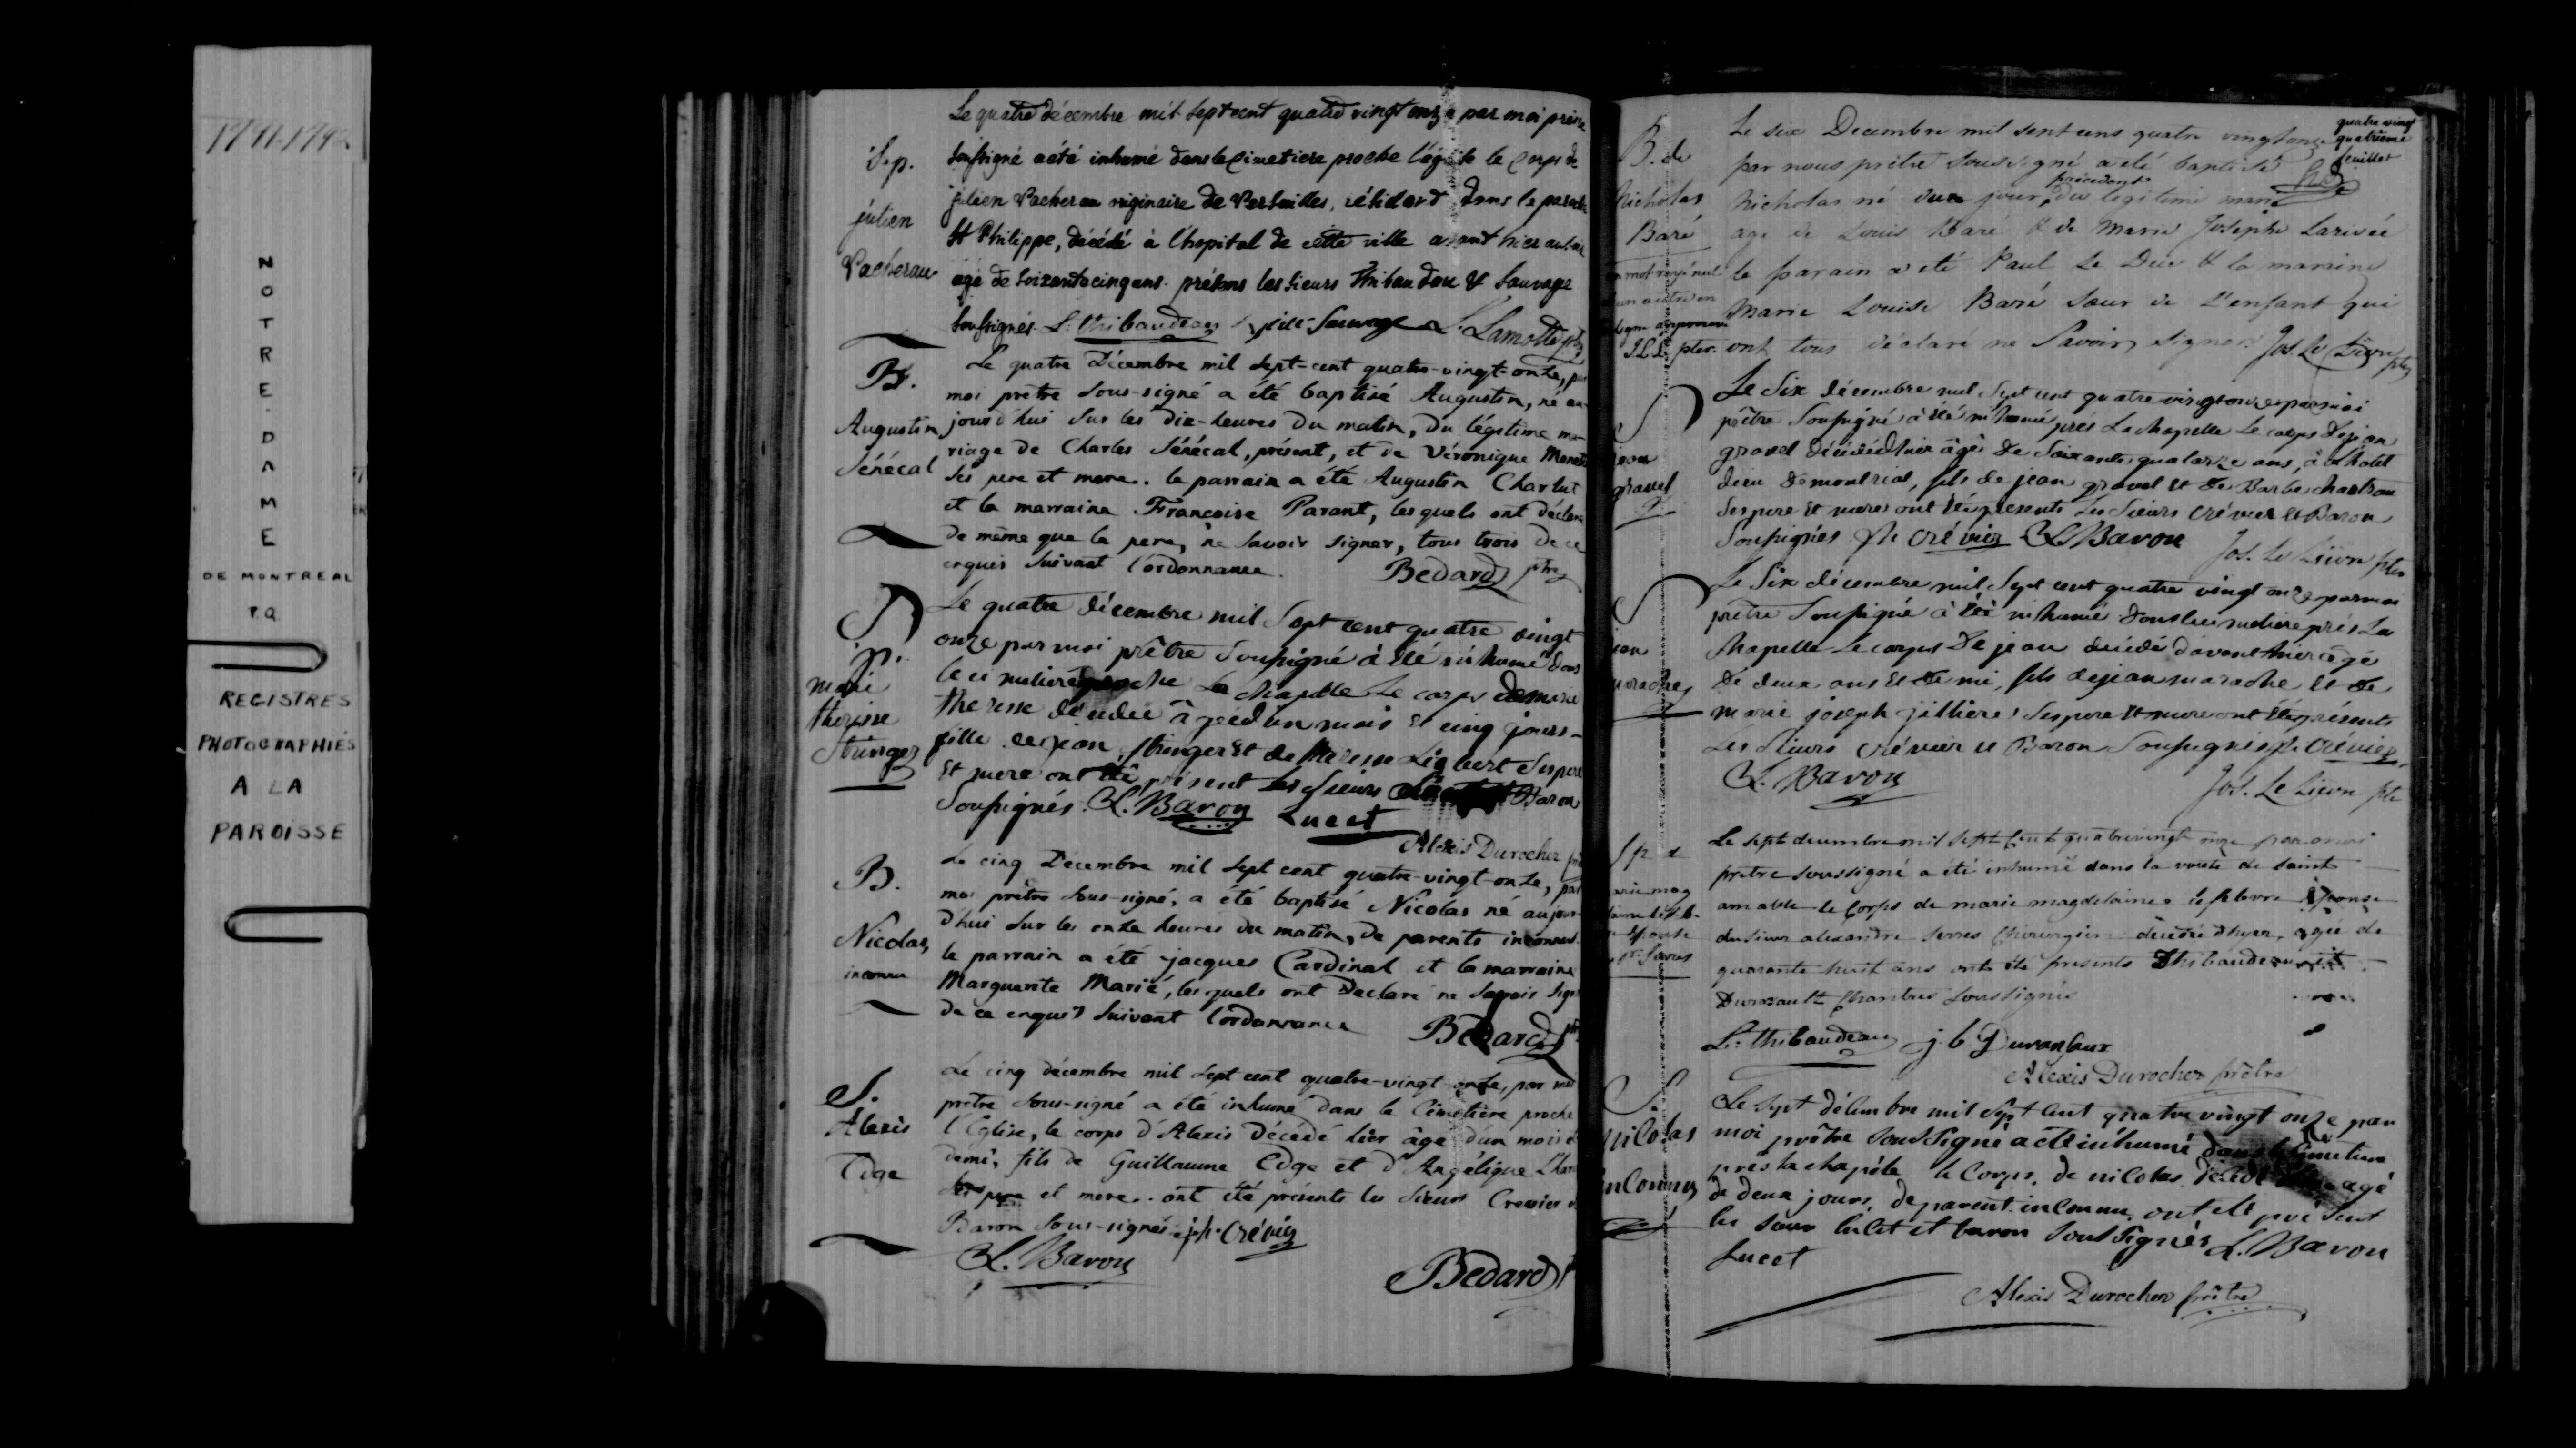 1791-1792
NOTRE-DAME
DE MONTREAL
P.Q.
REGISTRES
PHOTOGRAPHIÉS
A LA
PAROISSE
Le quatre décembre mil sept cent quatre vingt onze par moi prêtre
Sep.
soussigné a été inhumé dans le cimetiere proche l'église le corps de
julien
julien Vacherau originaire de Versailles, résident dans la paroisse
St Philippe, décédé à l'hopital de cette ville avant hier
Vacherau
agé de soixante cinq ans. présens les sieurs Thibaudau & Sauvage
soussignés. L. thibaudeau Sauvage L. Lamotte ptre
B.
Le quatre Décembre mil sept-cent quatre-vingt-onze, par
moi prêtre sous-signé a été baptisé Augustin, né au
Augustin
jourd'hui sur les dix-heures du matin, du légitime ma
Sénécal
riage de Charles Sénécal, présent, et de Véronique
ses pere et mere. le parrain a été Augustin Charlut
et la marraine Françoise Parant, lesquels ont déclaré
de même que le pere, ne savoir signer, tous trois de ce
enquis suivant l'ordonnance. Bedard ptre
S
Le quatre décembre mil Sept cent quatre vingt
p.
onze par moi prêtre Soussigné à été inhumé dans
marie
le cimetiere proche La chapelle Le corps de marie
theresse
theresse décedée âgéé d'un mois et cinq jours
Stringer
fille de jean Stringer et de theresse Ligbert Ses pere
Et mere ont été présent Les Sieurs Baron
Soussignés. L. Baron Lucet
Alexis Durocher
B.
Le cinq Décembre mil sept cent quatre-vingt-onze, par
moi prêtre sous-signé, a été baptisé Nicolas né aujour
Nicolas,
d'hui sur les onze heures du matin, de parents inconnus.
inconnu
le parrain a été jacques Cardinal et la marraine
Marguerite Marié, lesquels ont declaré ne savoir signer
de ce enquis suivant l'ordonnance Bedard ptre
S.
Le cinq décembre mil sept cent quatre-vingt-onze, par moi
prêtre sous-signé a été inhumé dans le Cimetière proche
Alexis
l'Eglise, le corps d'Alexis décédé hier âgé d'un mois &
Edge
demi, fils de Guillaume Edge et d'Angélique
ses pere et mere. ont été présents les sieurs Crevier &
Baron sous-signés. Crévier
L. Baron
Bedard
quatre vingt
quatrieme
feuillet
B. de
Nicholas
Baré
Le six Decembre mil sept cens quatre vingt onze
par nous prêtre soussigné a été baptisé
précédent
Nicholas né du jour, du legitime mari
age de Louis Baré & de Marie Josephe Larivée
un mot rayé nul
le parain a été Paul Le Duc & la maraine
un autre en
Marie Louise Baré sœur de l'enfant qui
ligne approuvé
J.L.L. ptre.
ont tous déclaré ne Savoir signer. Jos. Le Lievre ptre
S
jean
gravel
Le Six décembre mil Sept cent quatre vingt onze par moi
prêtre Soussigné à été inhumé prés La chapelle Le corps de jean
gravel décédé d'hier âgé de Soixante quatorze ans, à L'hotel
dieu de montréal, fils de jean gravel et de Barbe
Ses pere et mere ont été présents Les Sieurs crévier et Baron
Soussignés. crévier L. Baron
Jos. Le Lievre ptre
S
jean
marache
Le Six décembre mil Sept cent quatre vingt onze par moi
prêtre Soussigné à été inhumé dans le cimetiere prés La
chapelle Le corps de jean décédé d'avant hier âgé
de deux ans et demi, fils de jean marache et de
marie joseph Ses pere et mere ont été présents
Les Sieurs crévier et Baron Soussignés. crévier
L. Baron
Jos. Le Lievre ptre
Sp de
marie mag
Le sept decembre mil sept cent quatrevingt onze par moi
prêtre soussigné a été inhumé dans la voute de saint
amable le Corps de marie magdelaine lefebvre Epouse
Epouse
du sieur alexandre Serres Chirurgien décédé d'hyer, agée de
Serres
quarante huit ans ont été présents Thibaudeau et
Duransault Chantres soussignés
L. thibaudeau j. b Duransaux
Alexis Durocher prêtre
S
nicolas
inconnu
Le Sept décembre mil Sept Cent quatre vingt onze par
moi prêtre Soussigné a été inhumé dans le Cimetiere
prés la chapéle le Corps, de nicolas décédé agé
de deux jours, de parent inconnu, ont été présent
les sieur lucet et baron Soussignés L. Baron
Lucet
Alexis Durocher prêtre